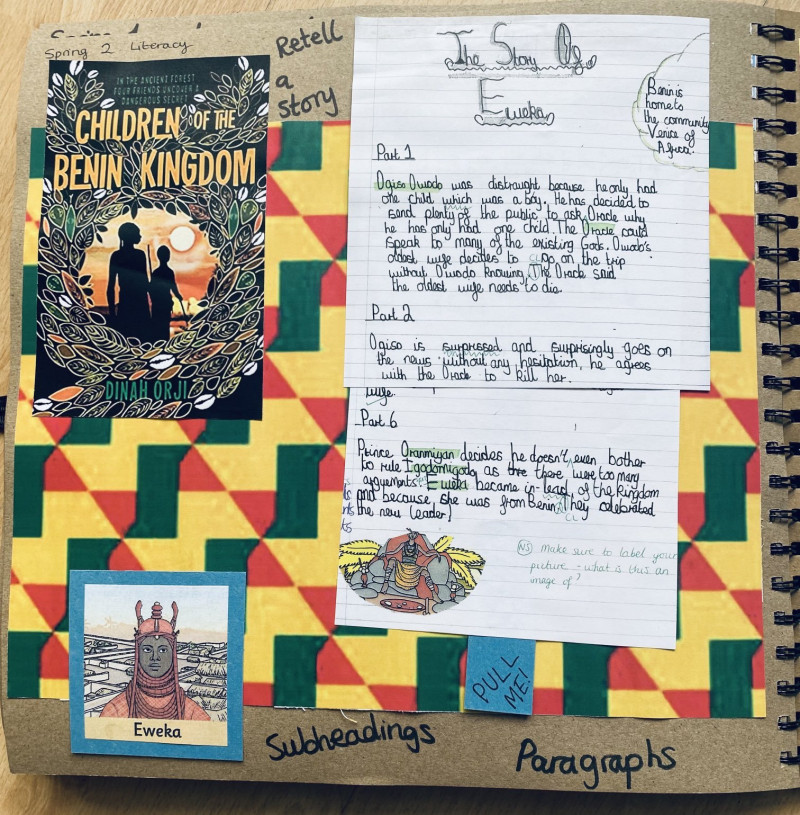 Spring 2 Literacy
Retell
a
story
IN THE ANCIENT FOREST
FOUR FRIENDS UNCOVER A
DANGEROUS SECRET
CHILDREN OF THE
BENIN KINGDOM
DINAH ORJI
The Story Of
Eweka
Benin is
home to
the community
Venice of
Africa.
Part 1
Ogiso Owodo was distraught because he only had
one child which was a boy. He has decided to
send plenty of the public to ask Oracle why
he has only had one child. The Oracle could
speak to many of the existing Gods. Owodo's
oldest wife decides to go on the trip
without Owodo knowing. The Oracle said
the oldest wife needs to die.
Part 2
Ogiso is surprised and surprisingly goes on
the news without any hesitation, he agrees
with the Oracle to kill her.
wife.
Part 6
Prince Oranmiyan decides he doesn't even bother
to rule Igodomigodo, as there were too many
arguments. Eweka became in-lead, of the kingdom
and because, she was from Benin. They celebrated
the new leader!
NS make sure to label your
picture - what is this an
image of?
PULL
ME!
Eweka
Subheadings
Paragraphs